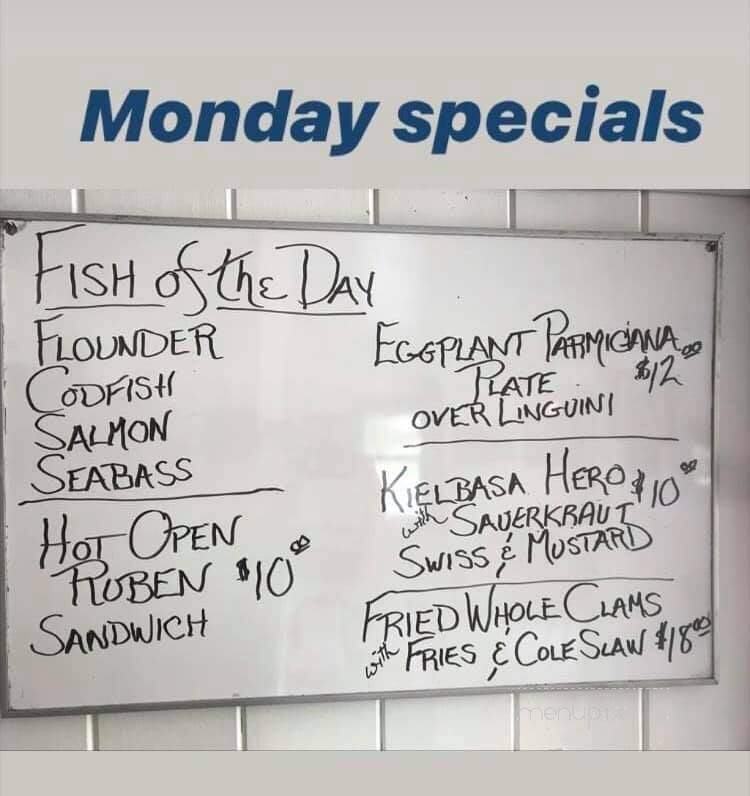 Monday specials
FISH of the DAY
FLOUNDER
CODFISH
SALMON
SEABASS
HOT OPEN
RUBEN $10.00
SANDWICH
EGGPLANT PARMIGIANA
PLATE $12.00
OVER LINGUINI
KIELBASA HERO $10.00
with SAUERKRAUT
SWISS & MUSTARD
FRIED WHOLE CLAMS
with FRIES & COLE SLAW $18.00